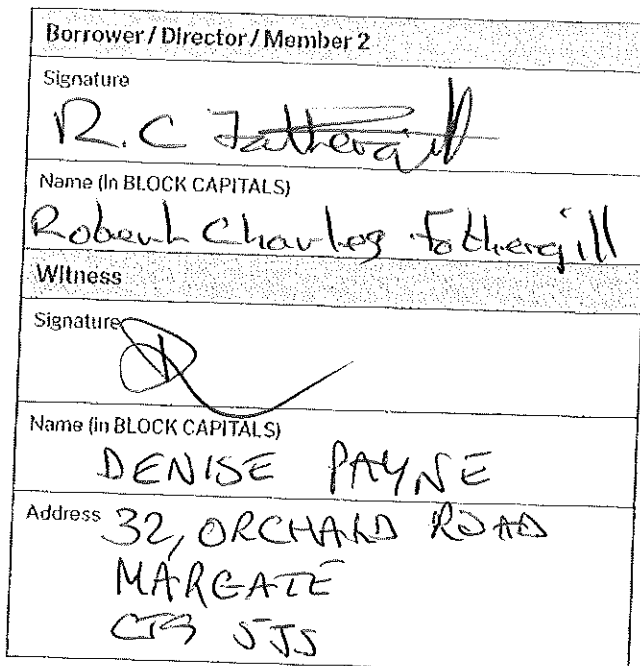 Borrower / Director / Member 2
Signature
R. C Fothergill
Name (in BLOCK CAPITALS)
Robert Charles Fothergill
Witness
Signature
Name (in BLOCK CAPITALS)
DENISE PAYNE
Address 32, ORCHARD ROAD
MARGATE
CT9 5JS